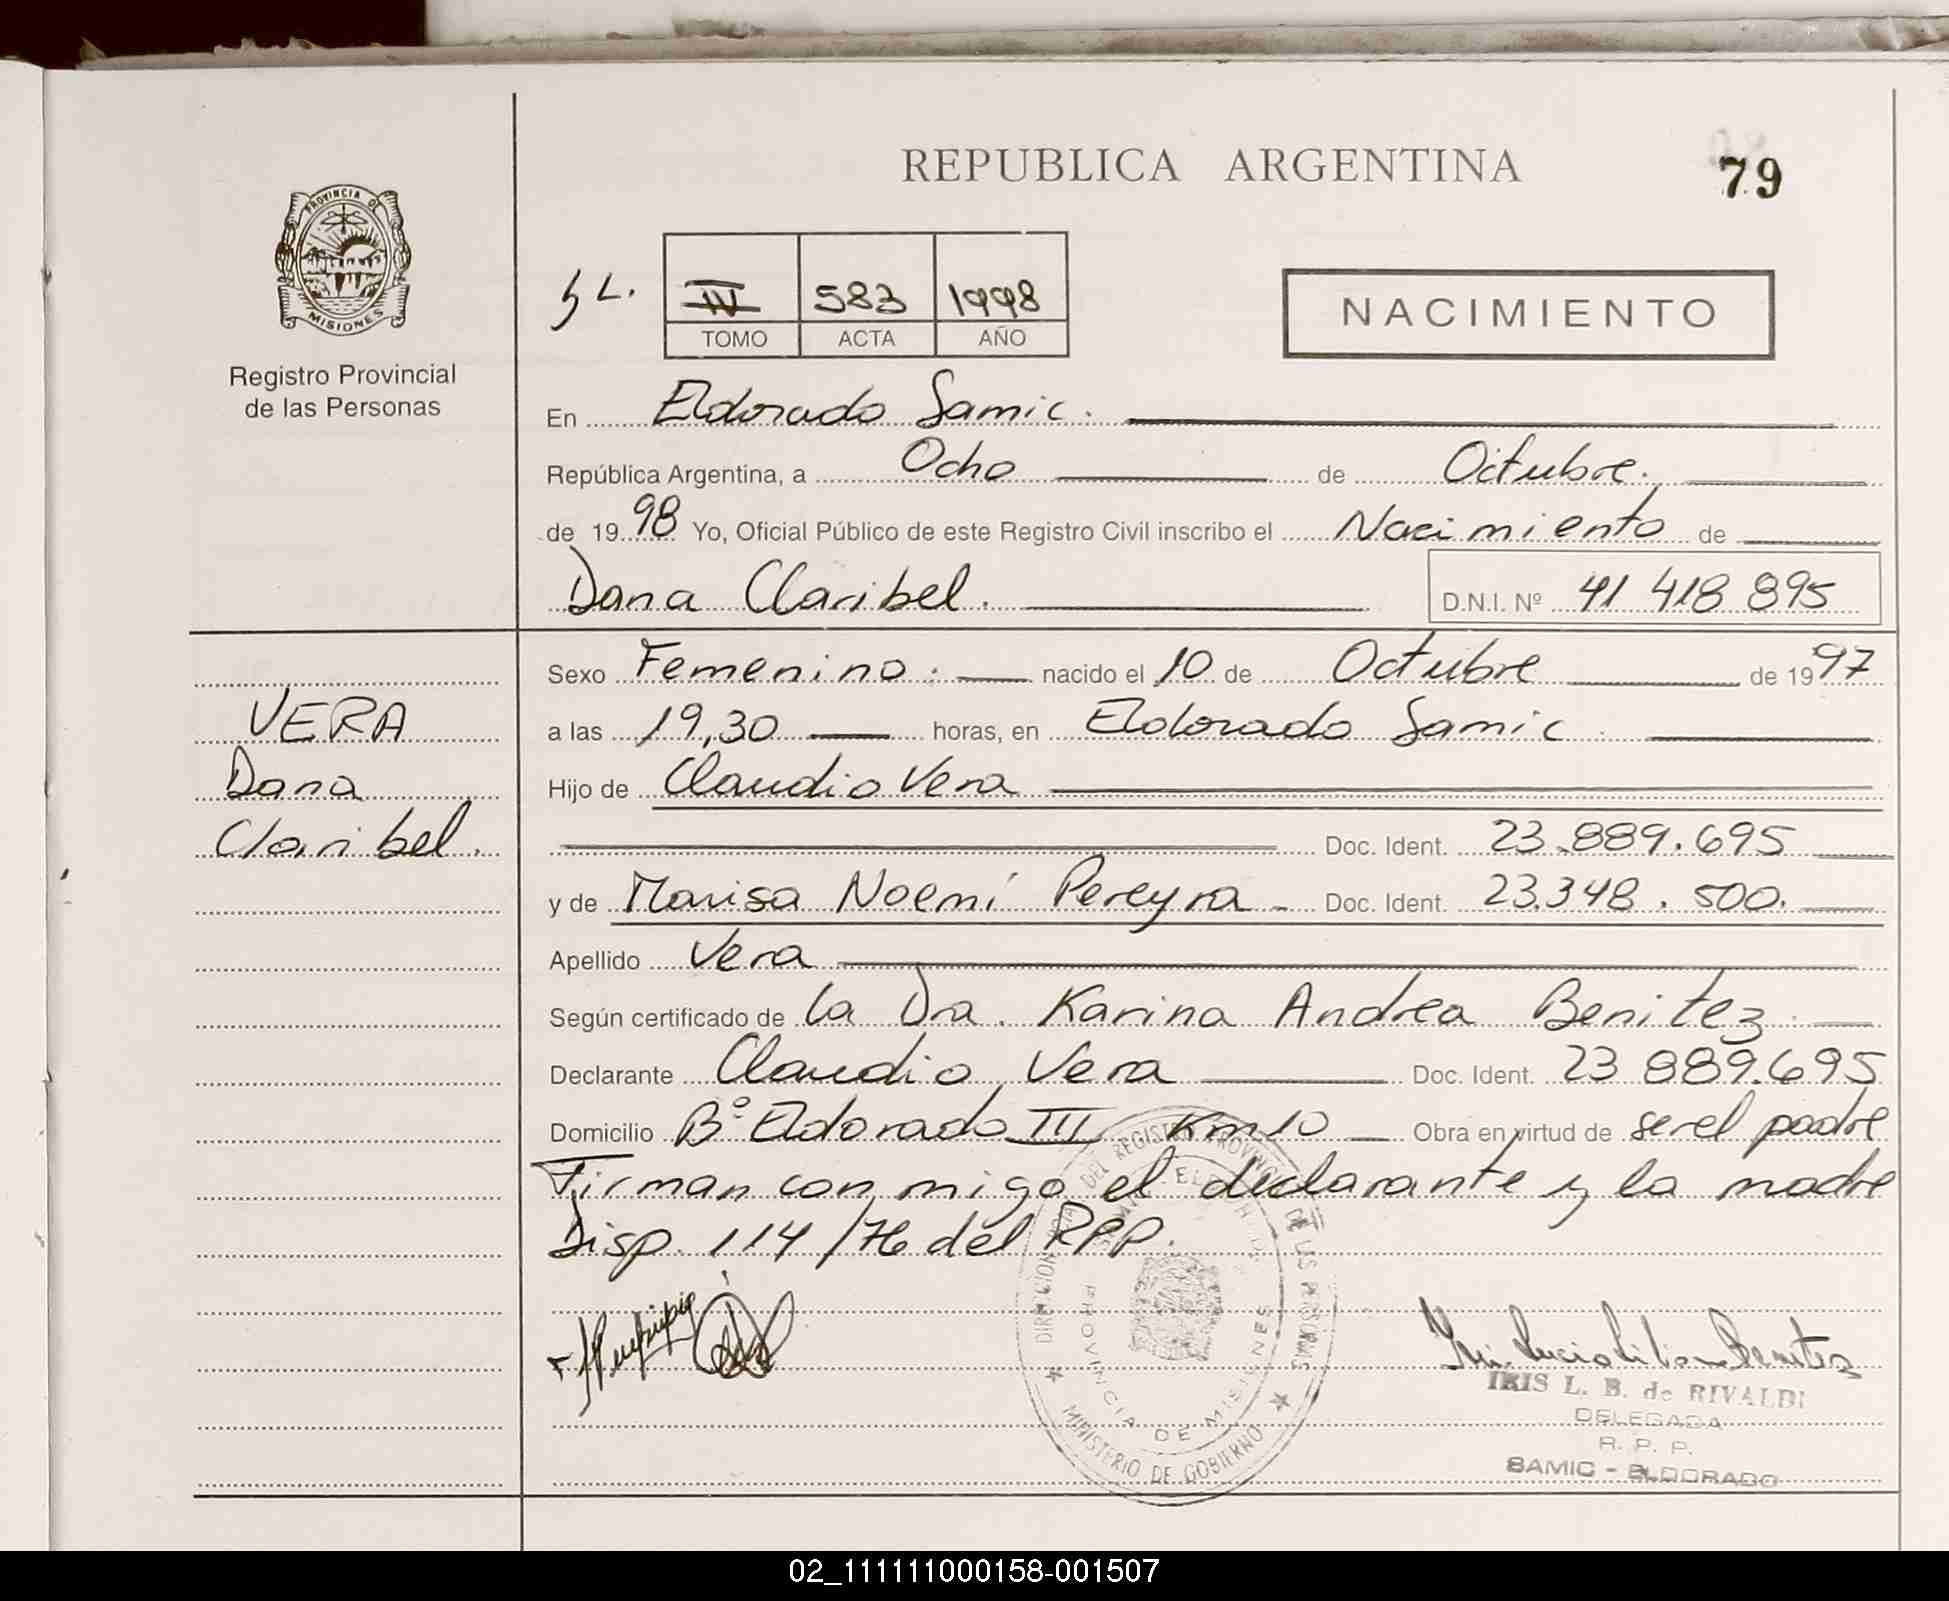 REPUBLICA ARGENTINA
79
PROVINCIA DE
MISIONES
Registro Provincial
de las Personas
5 L.
IV 583 1998
TOMO ACTA AÑO
NACIMIENTO
En Eldorado Samic.
República Argentina, a Ocho de Octubre.
de 1998 Yo, Oficial Público de este Registro Civil inscribo el Nacimiento de
Dana Claribel. D.N.I. Nº 41 418 895
VERA
Dana
Claribel.
Sexo Femenino. nacido el 10 de Octubre de 1997
a las 19,30 horas, en Eldorado Samic.
Hijo de Claudio Vera
Doc. Ident. 23.889.695
y de Marisa Noemí Pereyra Doc. Ident. 23.348.500.
Apellido Vera
Según certificado de la Dra. Karina Andrea Benitez.
Declarante Claudio Vera Doc. Ident. 23 889.695
Domicilio Bº Eldorado III Km 10 Obra en virtud de ser el padre
Firman con migo el declarante y la madre
Disp. 114/76 del RPP.
DIRECCION DEL REGISTRO PROVINCIAL DE LAS PERSONAS
PROVINCIA DE MISIONES
MINISTERIO DE GOBIERNO
IRIS L. B. de RIVALDI
DELEGADA
R. P. P.
SAMIC - ELDORADO
02_111111000158-001507